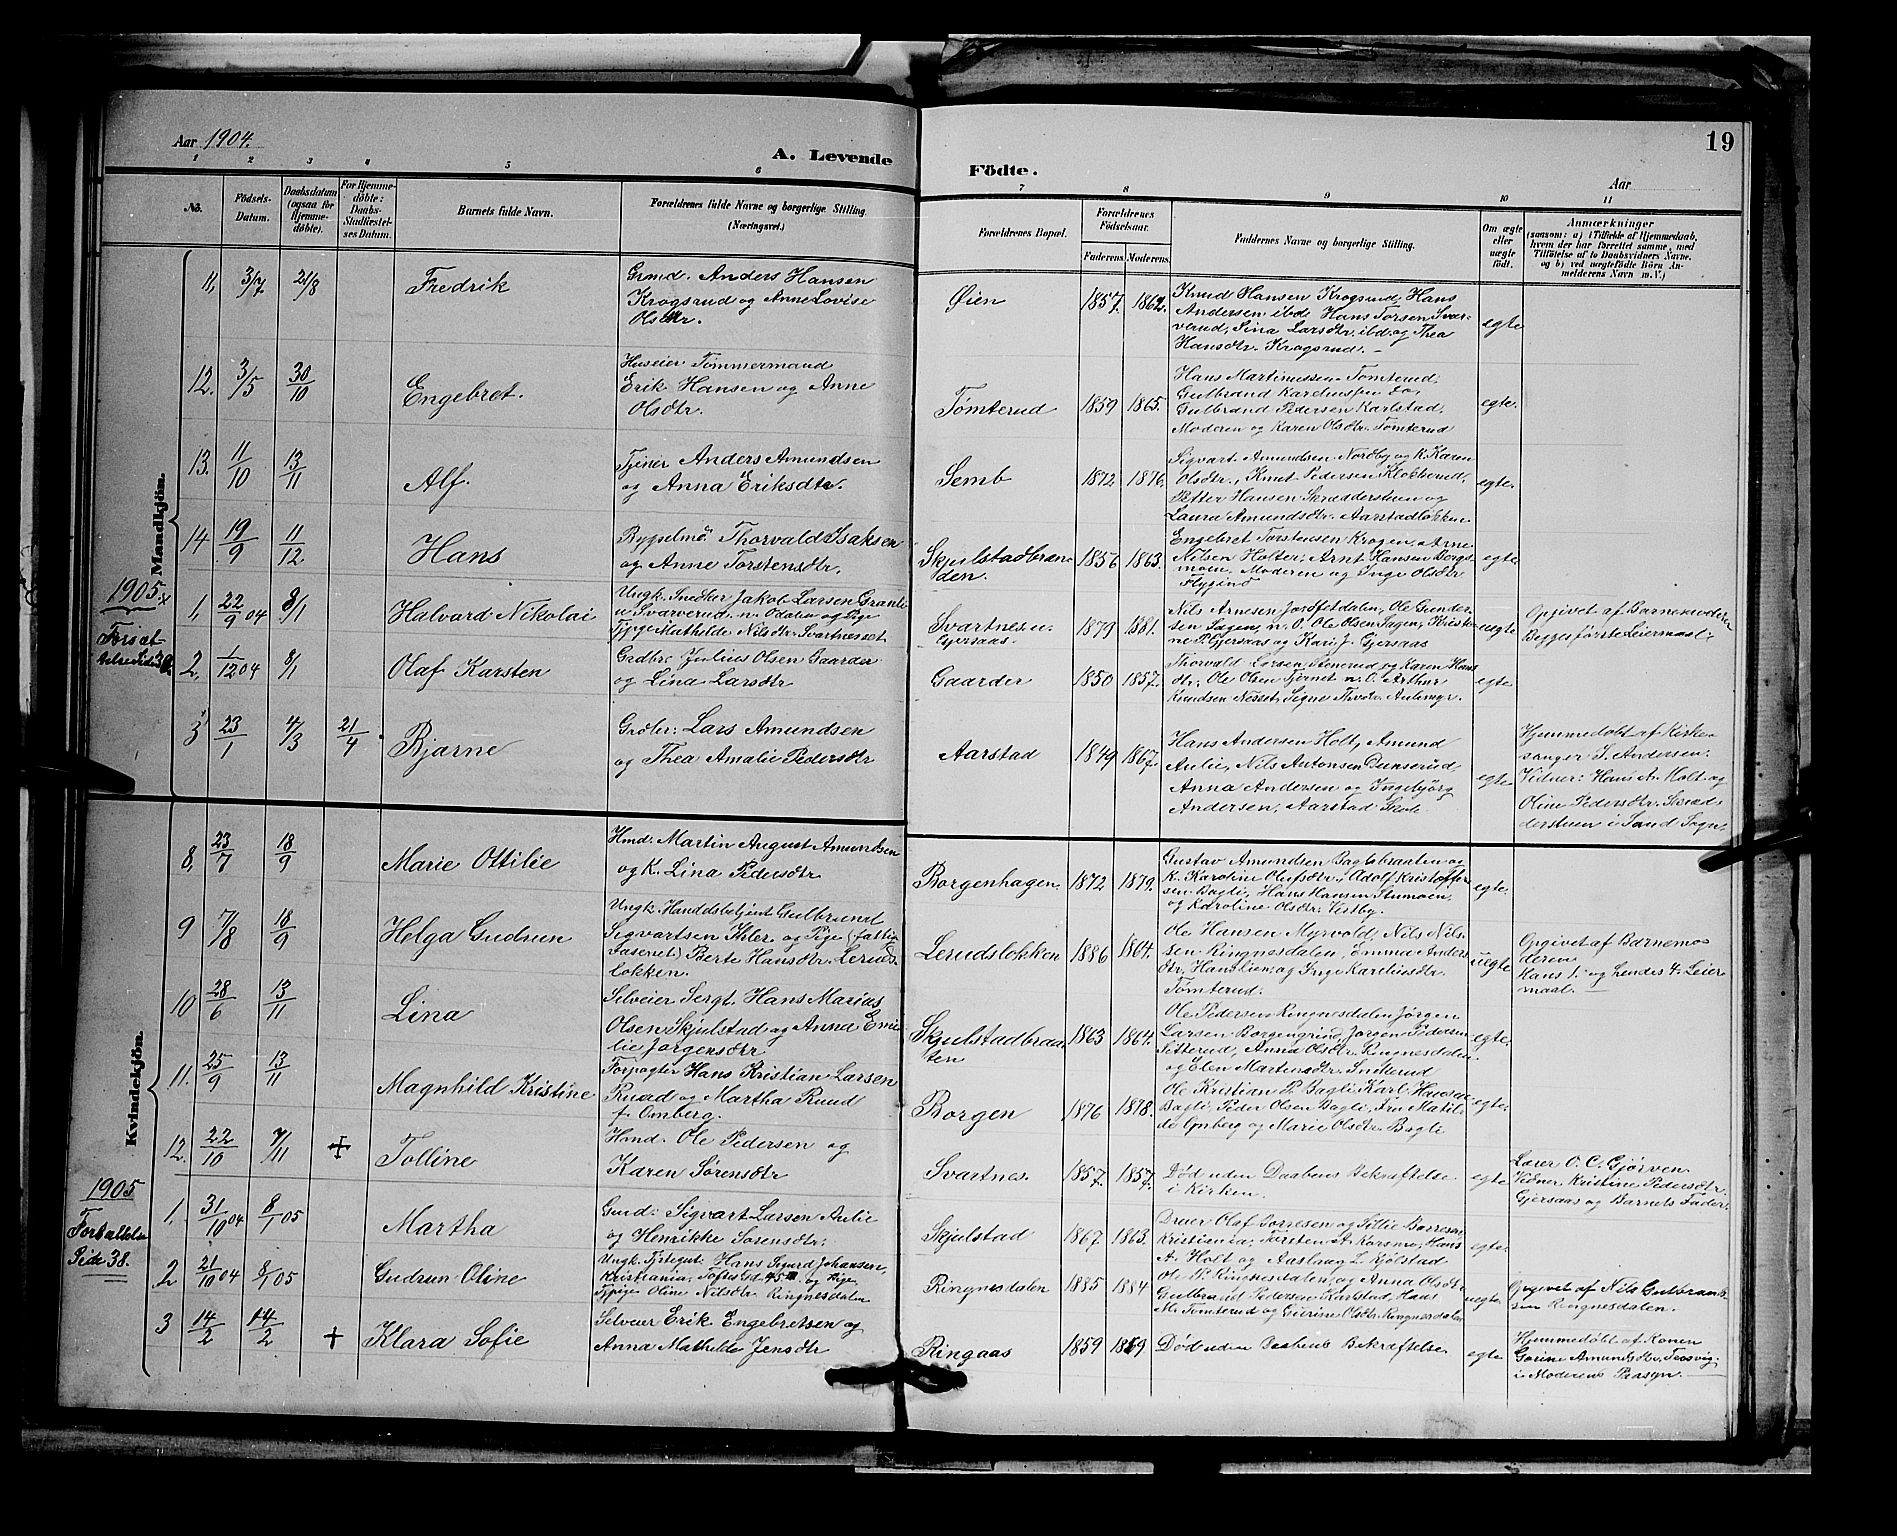 Aar 1904.
A. Levende
1 2 3 4 5 6
No.
Födsels-
Datum.
Daabsdatum
(ogsaa for
Hjemme-
döbte).
For Hjemme-
döbte:
Daabs-
Stadfæstel-
ses Datum.
Barnets fulde Navn.
Forældrenes fulde Navne og borgerlige Stilling.
(Næringsvei.)
Födte.
19
Aar
7 8 9 10 11
Forældrenes Bopæl.
Forældrenes
Födselsaar.
Faderens. Moderens.
Faddernes Navne og borgerlige Stilling.
Om ægte
eller
uægte
födt.
Anmærkninger
(saasom: a) i Tilfælde af Hjemmedaab,
hvem der har forrettet samme, med
Tilföielse af to Daabsvidners Navne.
og b) ved uægtefödte Börn An-
melderens Navn m. V.)
Mandkjön.
11, 3/7 21/8 Fredrik
Grmd. Anders Hansen
Krogsrud og Anne Lovise
Olsdtr.
Øien 1857. 1862.
Knud Hansen Krogsrud, Hans
Andersen ibd Hans Torsen Svar-
verud, Lina Larsdtr. ibd. og Thea
Hansdtr. Krogsrud. —
egte
12. 3/5 30/10 Engebret.
Huseier Tømmermand
Erik Hansen og Anne
Olsdtr.
Tømterud 1859 1865.
Hans Martinussen Tømterud,
Gulbrand Kareliussen do,
Gulbrand Pedersen Karlstad,
Moderen og Karen Olsdtr. Tømterud
egte.
13. 11/10 13/11 Alf.
Tjener Anders Amundsen
og Anna Eriksdtr.
Semb 1872 1876.
Sigvart Amundsen Nordby og K. Karen
Olsdtr., Knut Pedersen Klokkerud,
Petter Hansen Skrædderstuen og
Laura Amundsdtr. Aarstadløkken
egte.
14 19/9 11/12 Hans
Bygselmd. Thorvald Isaksen
og Anne Torstensdtr.
Skjulstadbraa-
den. 1856 1863.
Engebret Torstensen Krogen, Arne
Nilsen Holter, Arnt Hansen Bergs-
moen, Moderen og Inga Olsdtr
Flygind
egte
1905.
Forsat
Side 38
1, 22/9 04 8/1 Halvard Nikolai
Ungk. Snedker Jakob Larsen Granli
Svarverud. n. Odalen og Pige
Mathilde Nilsdtr. Svartnesset
Svartnes u.
Gjersaas 1879 1881.
Nils Arnesen Jordfetdalen, Ole Gunder-
sen Sagen, n. O. Ole Olsen Sagen, Kristi-
ne P. Gjersaas og Kari J. Gjersaas
uegte
Opgivet af Barnemoderen
Begges første Leiermaal.
2, 1/12 04 8/1 Olaf Karsten
Grdbr. Julius Olsen Gaarder
og Lina Larsdtr
Gaarder 1850 1857.
Thorvald Larsen Stenerud og Karen Hans
dtr, Ole Olsen Tjernet n. O. Arthur
Knudsen Nesset, Signe Thvdtr. Aulimyr.
egte
3 23/1 4/3 21/4. Bjarne
Grdbr: Lars Amundsen
og Thea Amalie Pedersdtr
Aarstad 1849 1867.
Hans Andersen Holt, Amund
Aulie, Nils Antonsen Dunserud,
Anna Andersen og Ingebjörg
Andersen, Aarstad Skole
egte
Hjemmedöbt af Kirke-
sanger S. Andersen.
Vidner: Hans A. Holt og
Oline Pedersdtr. Skræd-
derstuen i Sand Sogn.
Kvindekjön.
8, 23/7 18/9 Marie Ottilie
Hmd. Martin August Amundsen
og K. Lina Pedersdtr
Borgenhagen 1872 1879.
Gustav Amundsen Baglibraaten og
K. Karoline Olufsdtr, Adolf Kristoffer-
sen Bagli, Hans Hansen Stumoen,
og Karoline Olsdtr. Vestby.
egte.
9 7/8 18/9 Helga Gudrun
Ungk. Handelsbetjent Gulbrand
Sigvartsen Ihler og Pige (fattig-
vasenet) Berte Hansdtr. Leruds-
løkken.
Lerudsløkken 1886 1864.
Ole Hansen Myrvold, Nils Nil-
sen Ringnesdalen, Emma Anders
dtr. Hanslien og Inga Kareliusdtr.
Tømterud.
uegte
Opgivet af Barnemo-
deren
Hans 1. og hendes 4. Leier
maal. —
10 28/6 13/11 Lina
Selveier Sergt. Hans Marias
Olsen Skjulstad og Anna Emi-
lie Jørgensdtr
Skjulstadbraa-
ten 1863 1864.
Ole Pedersen Ringnesdalen Jörgen
Larsen Borgengrind, Jørgen Pedersen
Sitterud, Anna Olsdtr. Ringnesdalen
og Elen Martinsdtr. Snikerud
egte.
11. 25/9 13/11 Magnhild Kristine
Forpagter Hans Kristian Larsen
Ruud og Martha Ruud
f. Omberg.
Borgen 1876 1878.
Ole Kristian P. Bagli, Karl Hansen
Bagli, Peder Olsen Bagli, Fru Matil-
de Omberg og Marie Olsdtr. Bagli
egte.
12. 22/10 7/11 + Tolline
Hmd. Ole Pedersen og
Karen Sørensdtr
Svartnes. 1857. 1857.
Død uden Daabens Bekræftelse
i Kirken.
egte
Lærer O. C. Gjörven
Vidner. Kristine Pedersdtr.
Gjersaas og Barnets Fader.
1905
Forbattelse
Side 38.
1. 31/10 04 8/1 05 Martha
Gmd: Sigvart Larsen Aulie
og Henrikke Sørensdtr.
Skjulstad 1867 1863.
Olaf Torresen og Tillie Borresen,
Kristiania, Torsten A. Korsmo, Hans
A. Holt og Aaslaug L. Kjölstad
egte.
2 21/10 04 8/1 05 Gudrun Oline
Ungk. Tjstegut Hans Sigurd Johansen,
Kristiania, Toftesgd. 45 og Pige,
Oline Nilsdtr. Ringnesdalen
Ringnesdalen 1885 1884
Ole N. Ringnesdalen, og Anna Olsdtr
Gulbrand Pedersen Karlstad, Hans
M. Tømterud og Gurine Olsdtr. Ringnesdalen
uegte
Opgivet af Nils Gulbrand-
sen Ringnesdalen.
3 14/2 14/2 + Klara Sofie
Selveier Erik Engebretsen og
Anna Mathilde Jensdtr
Ringaas 1859 1869
Død uden Daabens Bekræftelse
egte
Hjemmedöbt af Konen
Gorine Amundsdtr. Fossvig
i Moderens Paasyn. —